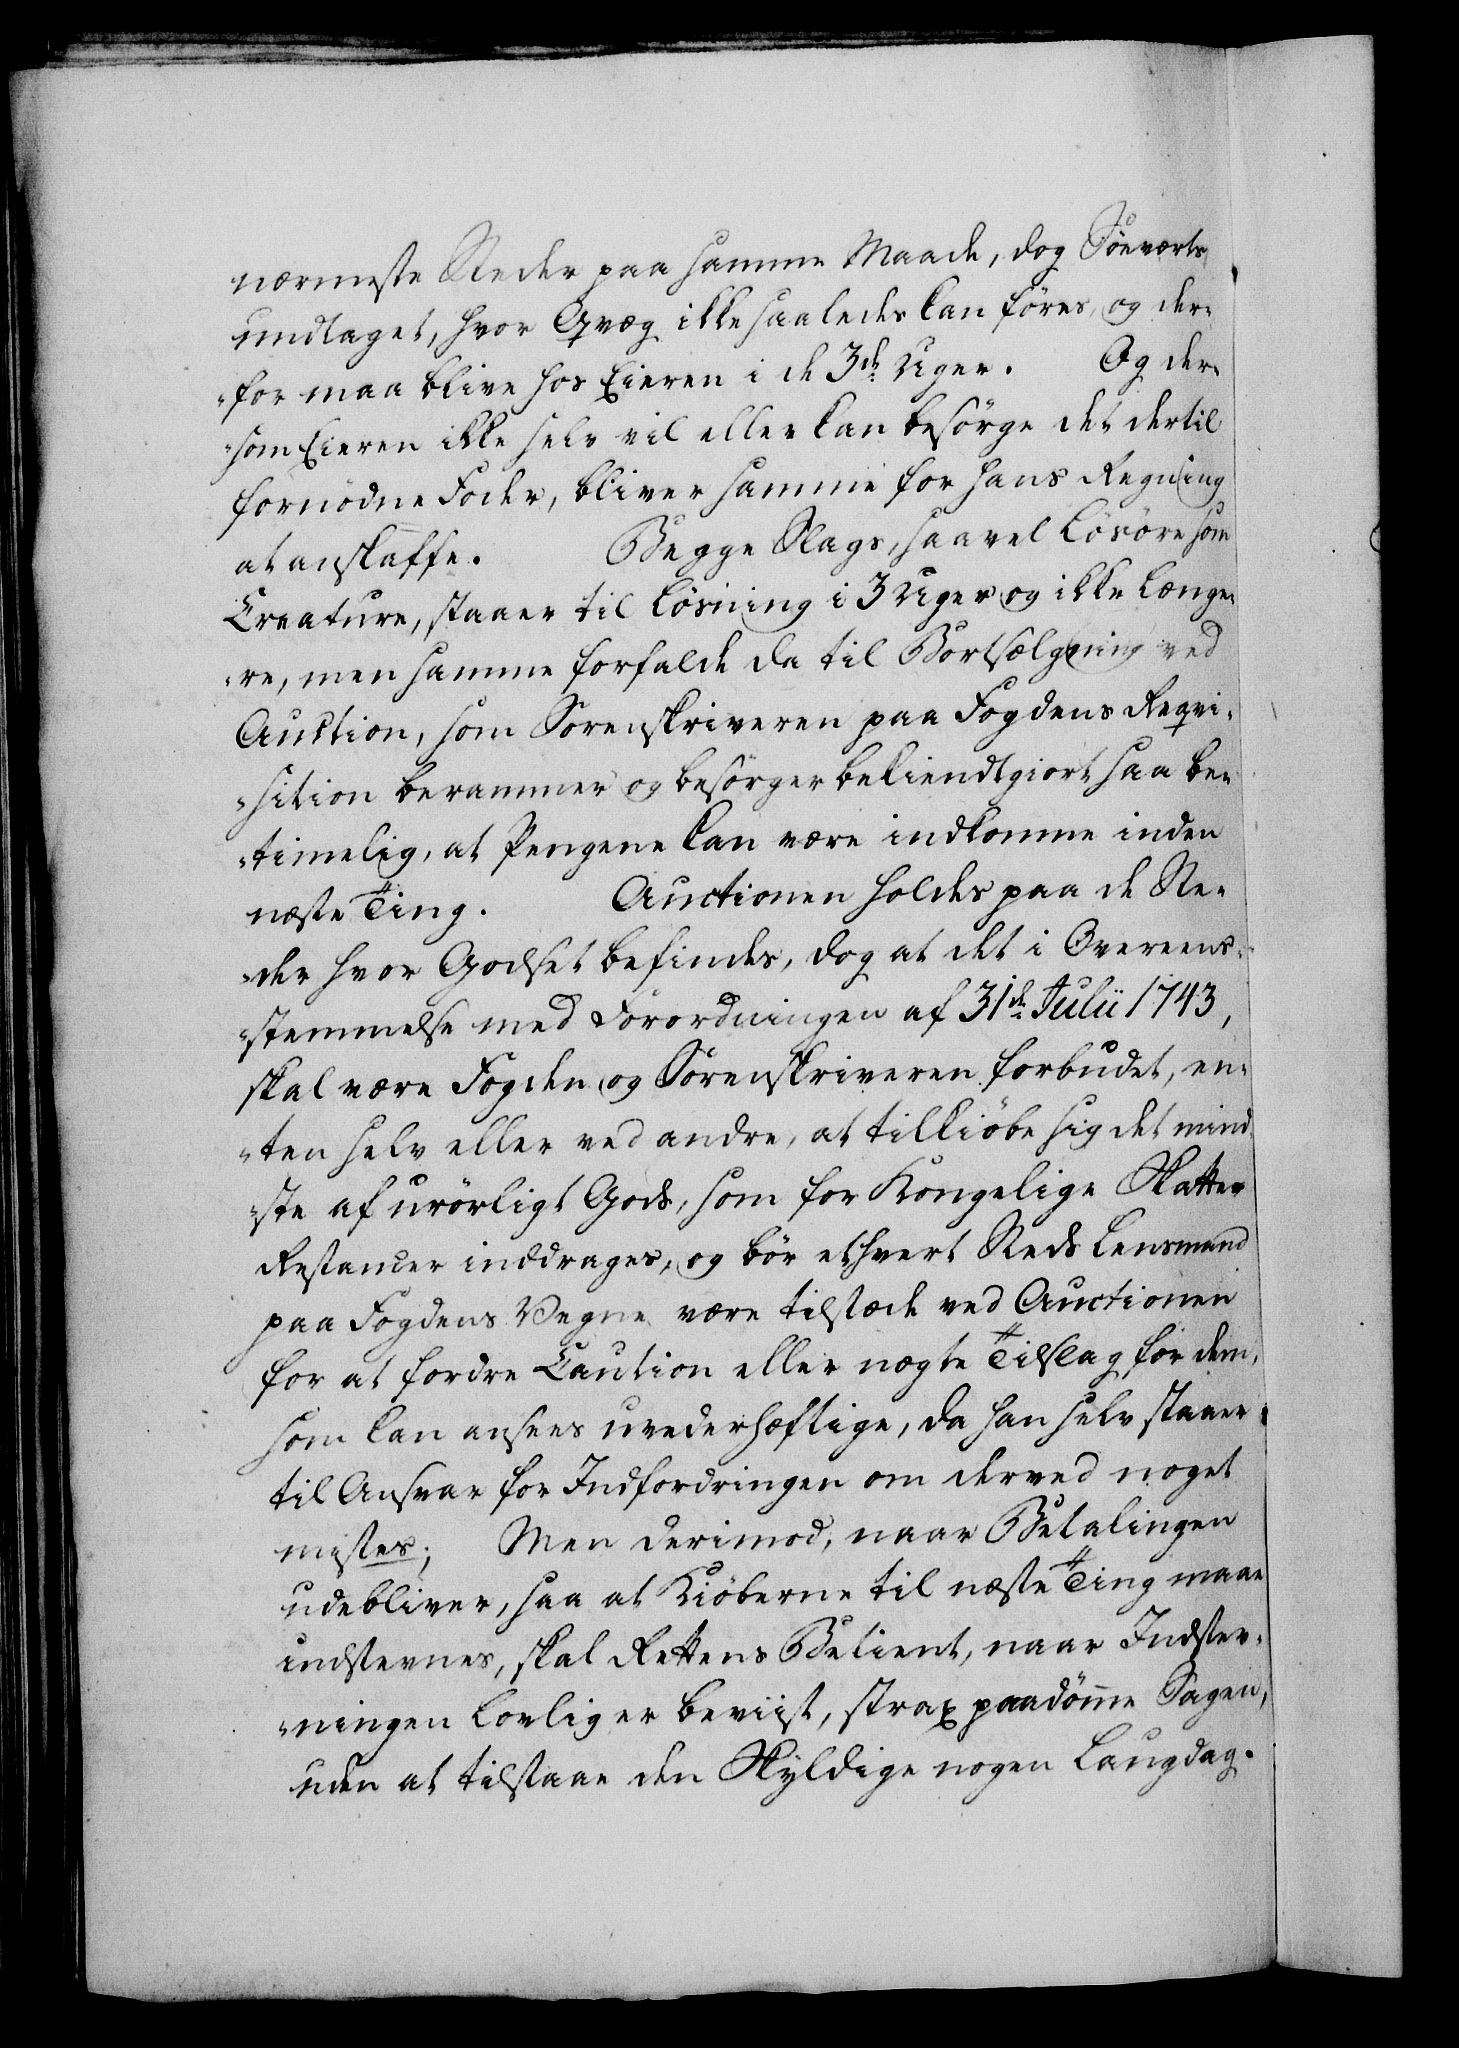 nærmeste Steder paa samme Maade, dog Söeværts
undtaget, hvor Qvæg ikke saaledes kan föres, og der-
for maa blive hos Eieren i de 3de Uger. Og der-
som Eieren ikke selv vil eller kan besörge det dertil
fornödne Foder, bliver samme for hans Regning
at anskaffe. Begge Slags, saavel Lösöre som
Creature, staaer til Lösning i 3 Uger og ikke længe-
re, men samme forfalde da til Bortsælgning ved
Auction, som Sorenskriveren paa Fogdens Reqvi-
sition berammer og besörger bekiendtgiort saa be-
timelig, at Pengene kan være indkomne inden
næste Ting. Auctionen holdes paa de Ste-
der hvor Godset befindes, dog at det i Overeens-
stemmelse med Forordningen af 31de Julii 1743,
skal være Fogden og Sorenskriveren forbudet, en-
ten selv eller ved andre, at tilkiöbe sig det mind-
ste af urörligt Gods, som for Kongelige Skatter
Restancer inddrages, og bör ethvert Steds Lensmand
paa Fogdens Vegne være tilstæde ved Auctionen
for at fordre Caution eller nægte Tilslag for dem,
som kan ansees uvederhæftige, da han selv staaer
til Ansvar for Indfordringen om derved noget
mistes; Men derimod, naar Betalingen
udebliver, saa at Kiöberne til næste Ting maae
indstevnes, skal Rettens Betient, naar Indstev-
ningen lovlig er beviist, strax paadömme Sagen,
uden at tilstaae den Skyldige nogen Laugdag.